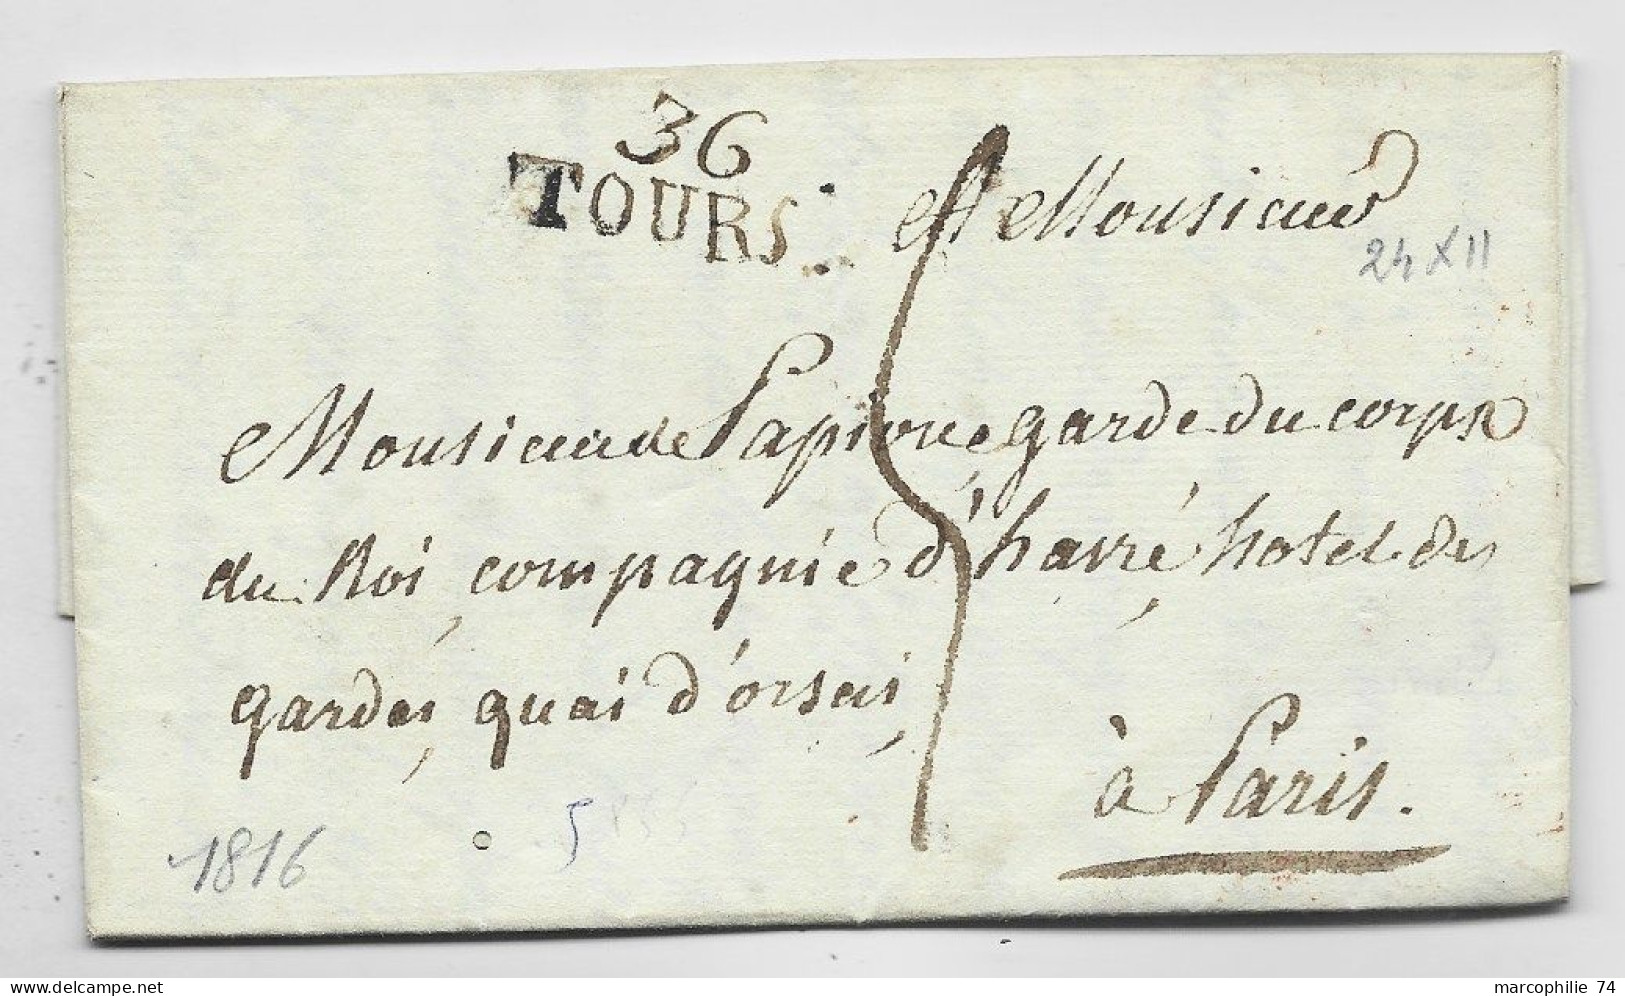 36
TOURS
A Monsieur
24 XII
Monsieur de Papion garde du corps
du Roi, compagnie d'havré, hotel des
gardes, quai d'orsai,
à Paris.
1816
5
marcophilie 74